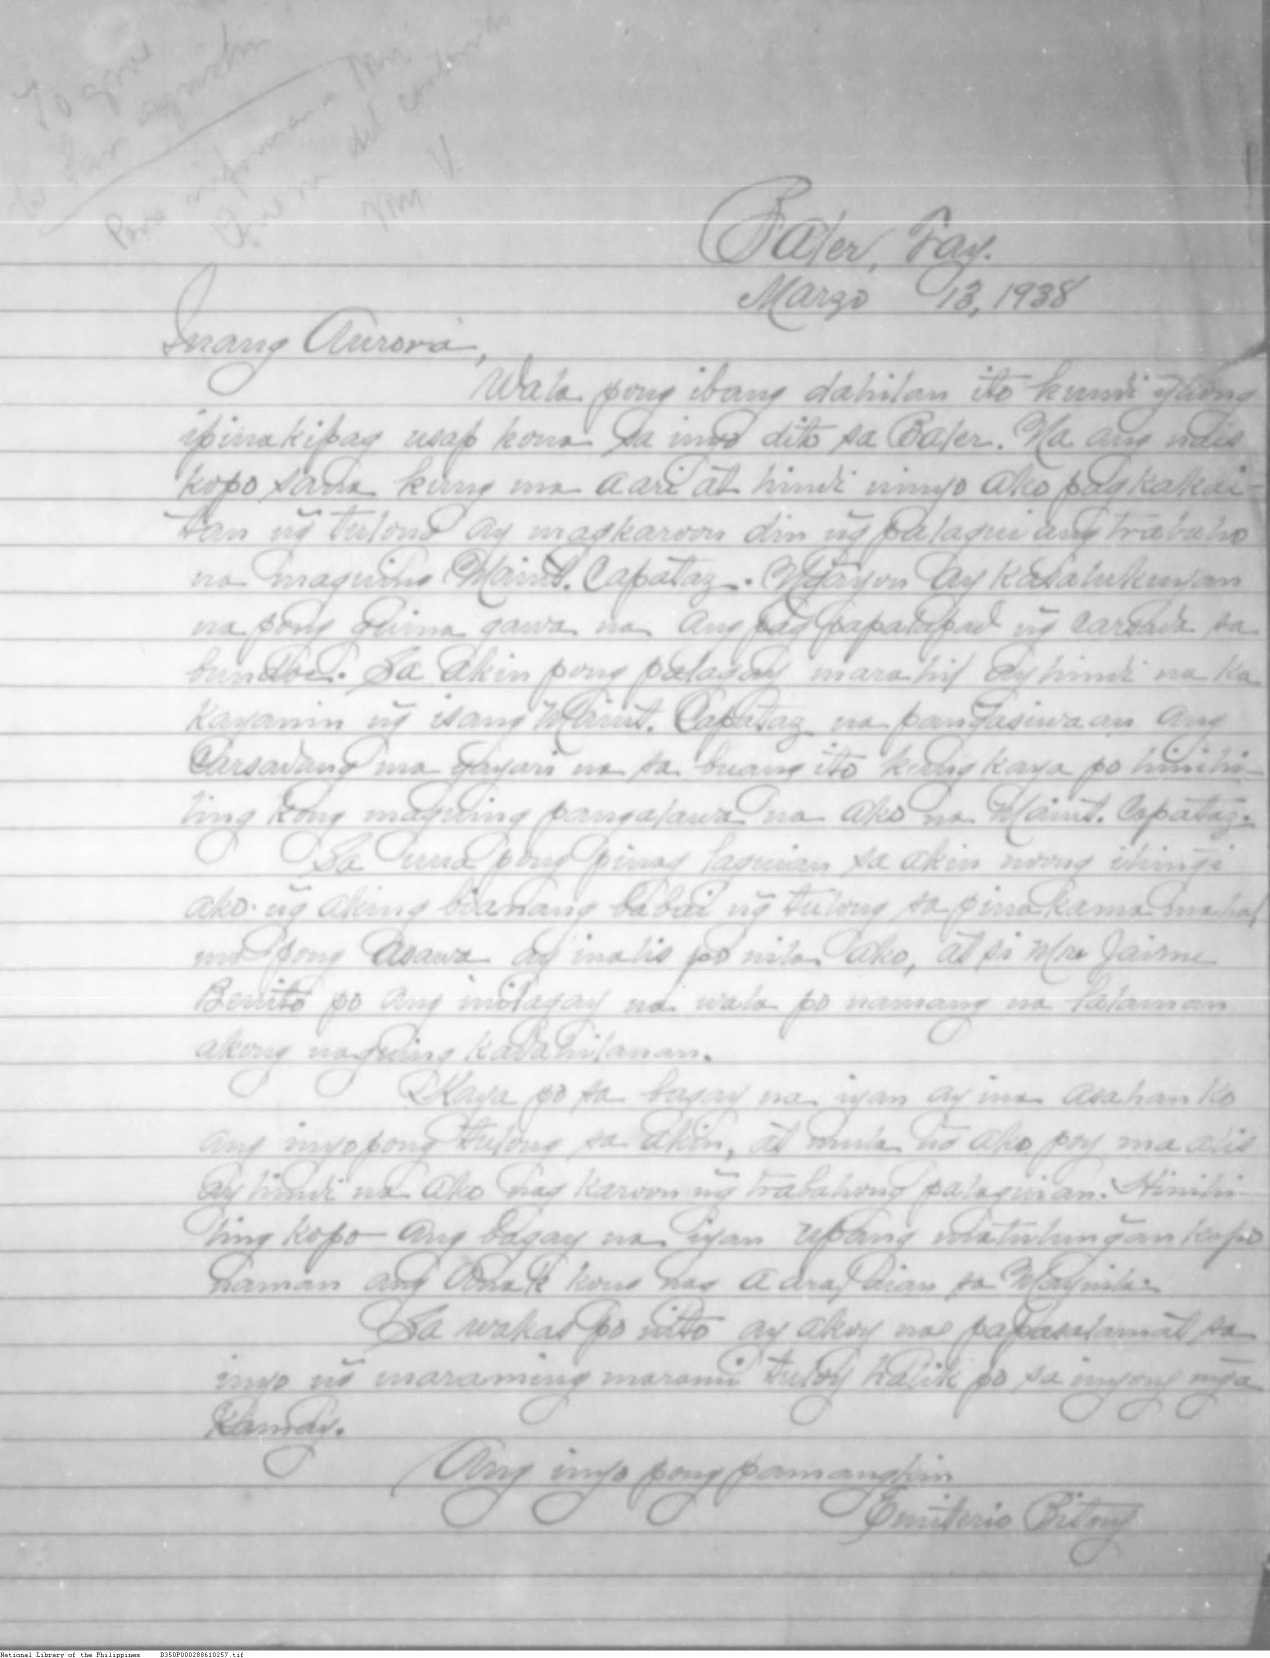 Baler, Tay.
Marzo 13, 1938
Inang Aurora,
Wala pong ibang dahilan ito kundi yaong
ipinakipag usap kona sa inyo dito sa Baler. Na ang nais
kopo sana kung ma aari at hindi ninyo ako pagkakai-
tan ng̃ tulong ay magkaroon din ng̃ palaguiang trabaho
na maguing Maint. Capataz. Ng̃ayon ay kasalukuyan
na pong guina gawa na ang pag papatapad ng̃ carsada sa
bundok. Sa akin pong palagay marahil ay hindi na ka
kayanin ng̃ isang Maint. Capataz na pang̃asiwaan ang
Carsadang ma yayari na sa buang ito kung kaya po hinihi-
ling kong maguing pangalawa na ako na Maint. Capataz.
Sa una pong pinag laguian sa akin noong ihing̃i
ako ng̃ aking bianang babai ng̃ tulong sa pinakama mahal
mo pong asawa ay inalis po nila ako, at si Mr. Jaime
Benito po ang inilagay na wala po namang na lalaman
akong naguing kadahilanan.
Kaya po sa bagay na iyan ay ina asahan ko
ang inyo pong tulong sa akin, at mula ng̃ ako poy ma alis
ay hindi na ako nag karoon ng̃ trabahong palaguian. Hinihi-
ling kopo ang bagay na iyan upang matulung̃an kopo
naman ang anak kong nag aaral dian sa Maynila.
Sa wakas po nito ay akoy nag papasalamat sa
inyo ng̃ maraming marami tuloy halik po sa inyong mg̃a
Kamay.
Ang inyo pong pamangkin
Emiterio Bitong
National Library of the Philippines D350P000288610257.tif